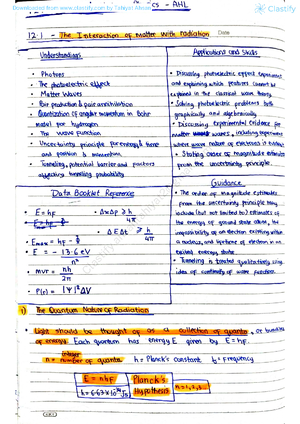 Downloaded from www.clastify.com by Tahiyat Ahnaf
Clastify
cs - AHL
12.1 - The Interaction of matter with radiation
Date
Understandings
• Photons
• The photoelectric effect
• Matter Waves
• Pair production & pair annihilation
• Quantization of angular momentum in Bohr
model for hydrogen
• The wave function
• Uncertainty principle for energy & time
and position & momentum
• Tunneling, potential barrier and factors
affecting tunneling probability
Applications and Skills
• Discussing photoelectric effect experiment
and explaining which features cannot be
explained in the classical wave theory.
• Solving photoelectric problems both
graphically and algebraically
• Discussing experimental evidence for
matter waves, including experiment
where wave nature of electrons is evident
• Stating order of magnitude estimates
from the uncertainty principle.
Data Booklet Reference
• E = hF
• Emax = hF - Φ
• E = - 13.6 eV / n²
• mvr = nh / 2π
• P(r) = |Ψ|² ΔV
• Δx Δp ≥ h / 4π
• ΔE Δt ≥ h / 4π
Guidance
• The order of magnitude estimates
from the uncertainty principle may
include (but not limited to) estimates of
the energy of ground state atom, the
impossibility of an electron existing within
a nucleus, and lifetime of electron in an
excited energy state
• Tunneling is treated qualitatively using
idea of continuity of wave function.
1) The Quantum Nature of Radiation
• Light should be thought of as a collection of quanta, or bundles
of energy. Each quantum has energy E given by E = hF.
integer
n = number of quanta h = Planck's constant f = frequency
E = nhF
h = 6.63 × 10⁻³⁴ Js
Planck's
Hypothesis
n = 1, 2, 3...